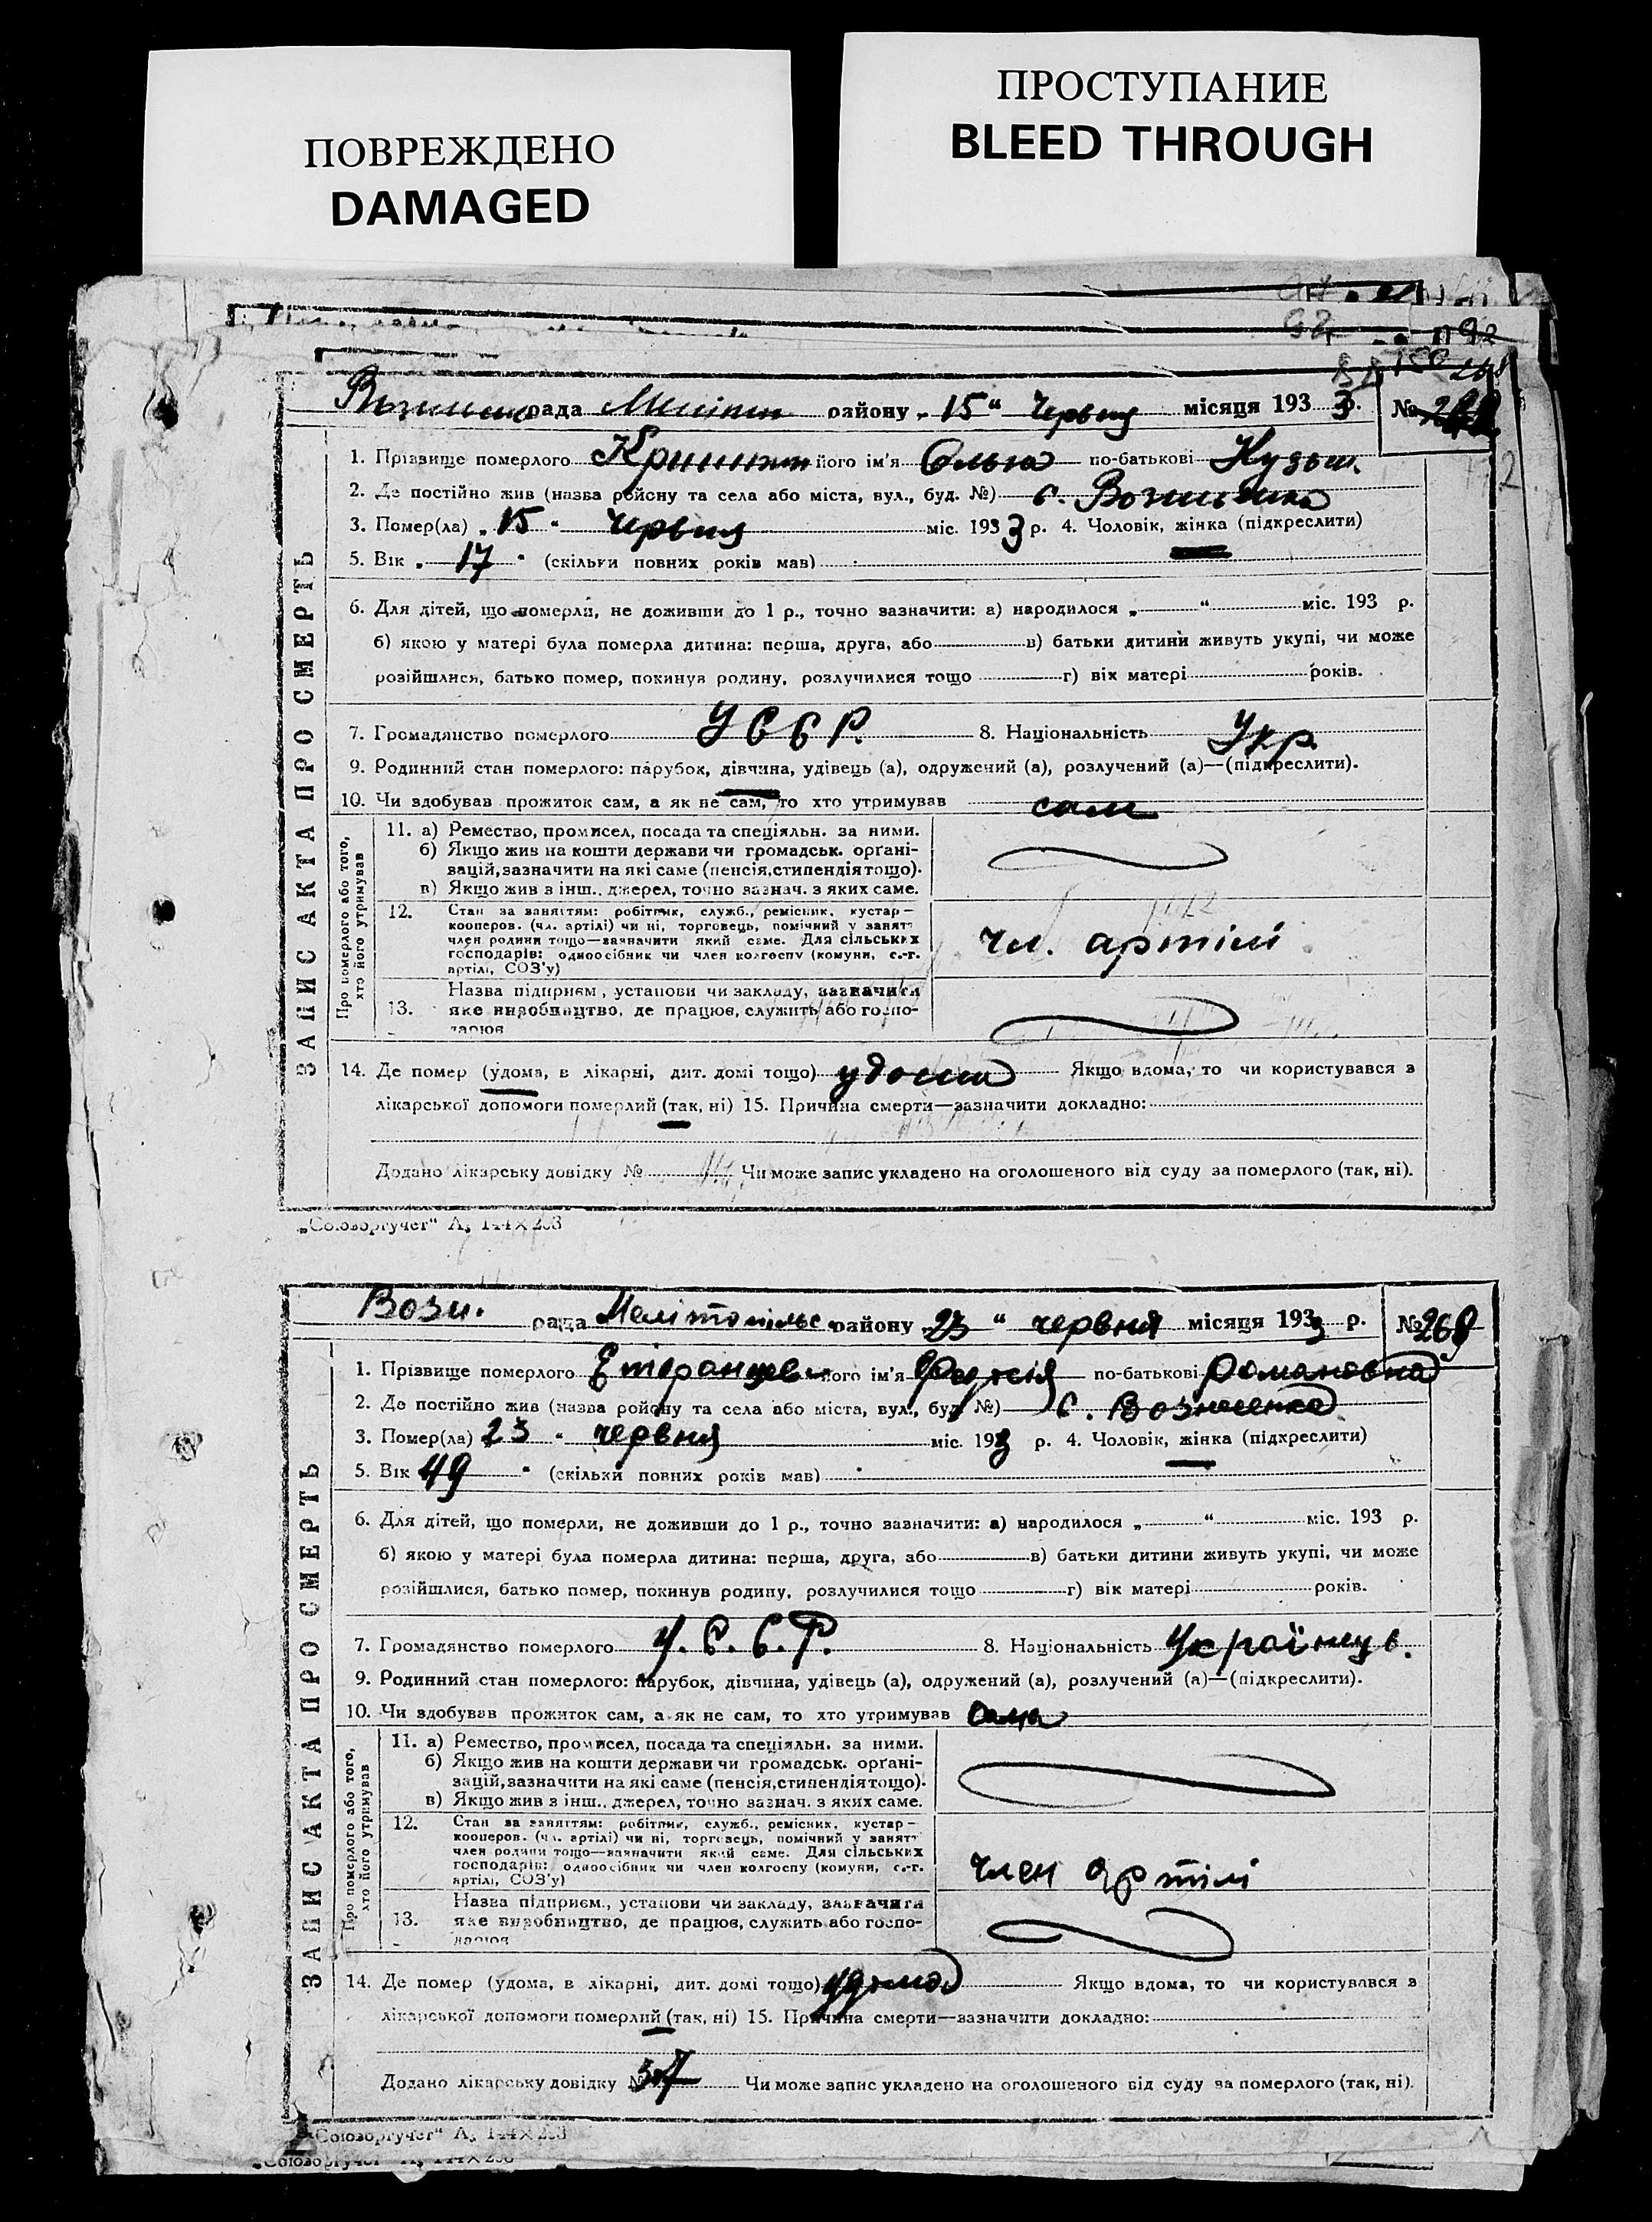 ПОВРЕЖДЕНО
DAMAGED
ПРОСТУПАНИЕ
BLEED THROUGH
рада район у „15“ червня місяця 1933 р. №
1. Прізвище померлого його ім'я Ольга по-батькові
2. Де постійно жив (назва району та села або міста, вул., буд. №) с.
3. Помер(ла) „15“ червня міс. 1933 р. 4. Чоловік, жінка (підкреслити)
5. Вік „17“ (скільки повних років мав)
6. Для дітей, що померли, не доживши до 1 р., точно зазначити: а) народилося „ “ міс. 193 р.
б) якою у матері була померла дитина: перша, друга, або в) батьки дитини живуть укупі, чи може
розійшлися, батько помер, покинув родину, розлучилися тощо г) вік матері років.
7. Громадянство померлого УССР. 8. Національність Укр.
9. Родинний стан померлого: парубок, дівчина, удівець (а), одружений (а), розлучений (а)—(підкреслити).
10. Чи здобував прожиток сам, а як не сам, то хто утримував сам
ЗАПИС АКТА ПРО СМЕРТЬ
Про померлого або того,
хто його утримував
11. а) Ремество, промисел, посада та спеціяльн. за ними.
б) Якщо жив на кошти держави чи громадськ. орґані-
зацій, зазначити на які саме (пенсія, стипендія тощо).
в) Якщо жив з інш. джерел, точно зазнач. з яких саме.
12. Стан за заняттям: робітник, служб., ремісник, кустар—
кооперов. (чл. артілі) чи ні, торговець, помічний у занятт
член родини тощо—зазначити який саме. Для сільських
господарів: одноосібник чи член колгоспу (комуни, с.-г.
артілі, СОЗ'у)
чл. артілі
13. Назва підприєм., установи чи закладу, зазначити
яке виробництво, де працює, служить або госпо-
дарює
14. Де помер (удома, в лікарні, дит. домі тощо) удома Якщо вдома, то чи користувався з
лікарської допомоги померлий (так, ні) 15. Причина смерти—зазначити докладно:
Додано лікарську довідку № Чи може запис укладено на оголошеного від суду за померлого (так, ні).
„Союзоргучет“ А₅ 144×203
Возн. рада Мелітопільс. району „23“ червня місяця 1933 р. №268
1. Прізвище померлого його ім'я по-батькові Романовна
2. Де постійно жив (назва району та села або міста, вул., буд. №) с. Вознесенка
3. Помер(ла) 23 “ червня міс. 1933 р. 4. Чоловік, жінка (підкреслити)
5. Вік 49 “ (скільки повних років мав)
6. Для дітей, що померли, не доживши до 1 р., точно зазначити: а) народилося „ “ міс. 193 р.
б) якою у матері була померла дитина: перша, друга, або в) батьки дитини живуть укупі, чи може
розійшлися, батько помер, покинув родину, розлучилися тощо г) вік матері років.
7. Громадянство померлого У.С.С.Р. 8. Національність Українець.
9. Родинний стан померлого: парубок, дівчина, удівець (а), одружений (а), розлучений (а)—(підкреслити).
10. Чи здобував прожиток сам, а як не сам, то хто утримував сама
ЗАПИС АКТА ПРО СМЕРТЬ
Про померлого або того,
хто його утримував
11. а) Ремество, промисел, посада та спеціяльн. за ними.
б) Якщо жив на кошти держави чи громадськ. орґані-
зацій, зазначити на які саме (пенсія, стипендія тощо).
в) Якщо жив з інш. джерел, точно зазнач. з яких саме.
12. Стан за заняттям: робітник, служб., ремісник, кустар—
кооперов. (чл. артілі) чи ні, торговець, помічний у занятт
член родини тощо—зазначити який саме. Для сільських
господарів: одноосібник чи член колгоспу (комуни, с.-г.
артілі, СОЗ'у)
член артілі
13. Назва підприєм., установи чи закладу, зазначити
яке виробництво, де працює, служить або госпо-
дарює
14. Де помер (удома, в лікарні, дит. домі тощо) удома Якщо вдома, то чи користувався з
лікарської допомоги померлий (так, ні) 15. Причина смерти—зазначити докладно:
Додано лікарську довідку № 37 Чи може запис укладено на оголошеного від суду за померлого (так, ні).
„Союзоргучет“ А₅ 144×203